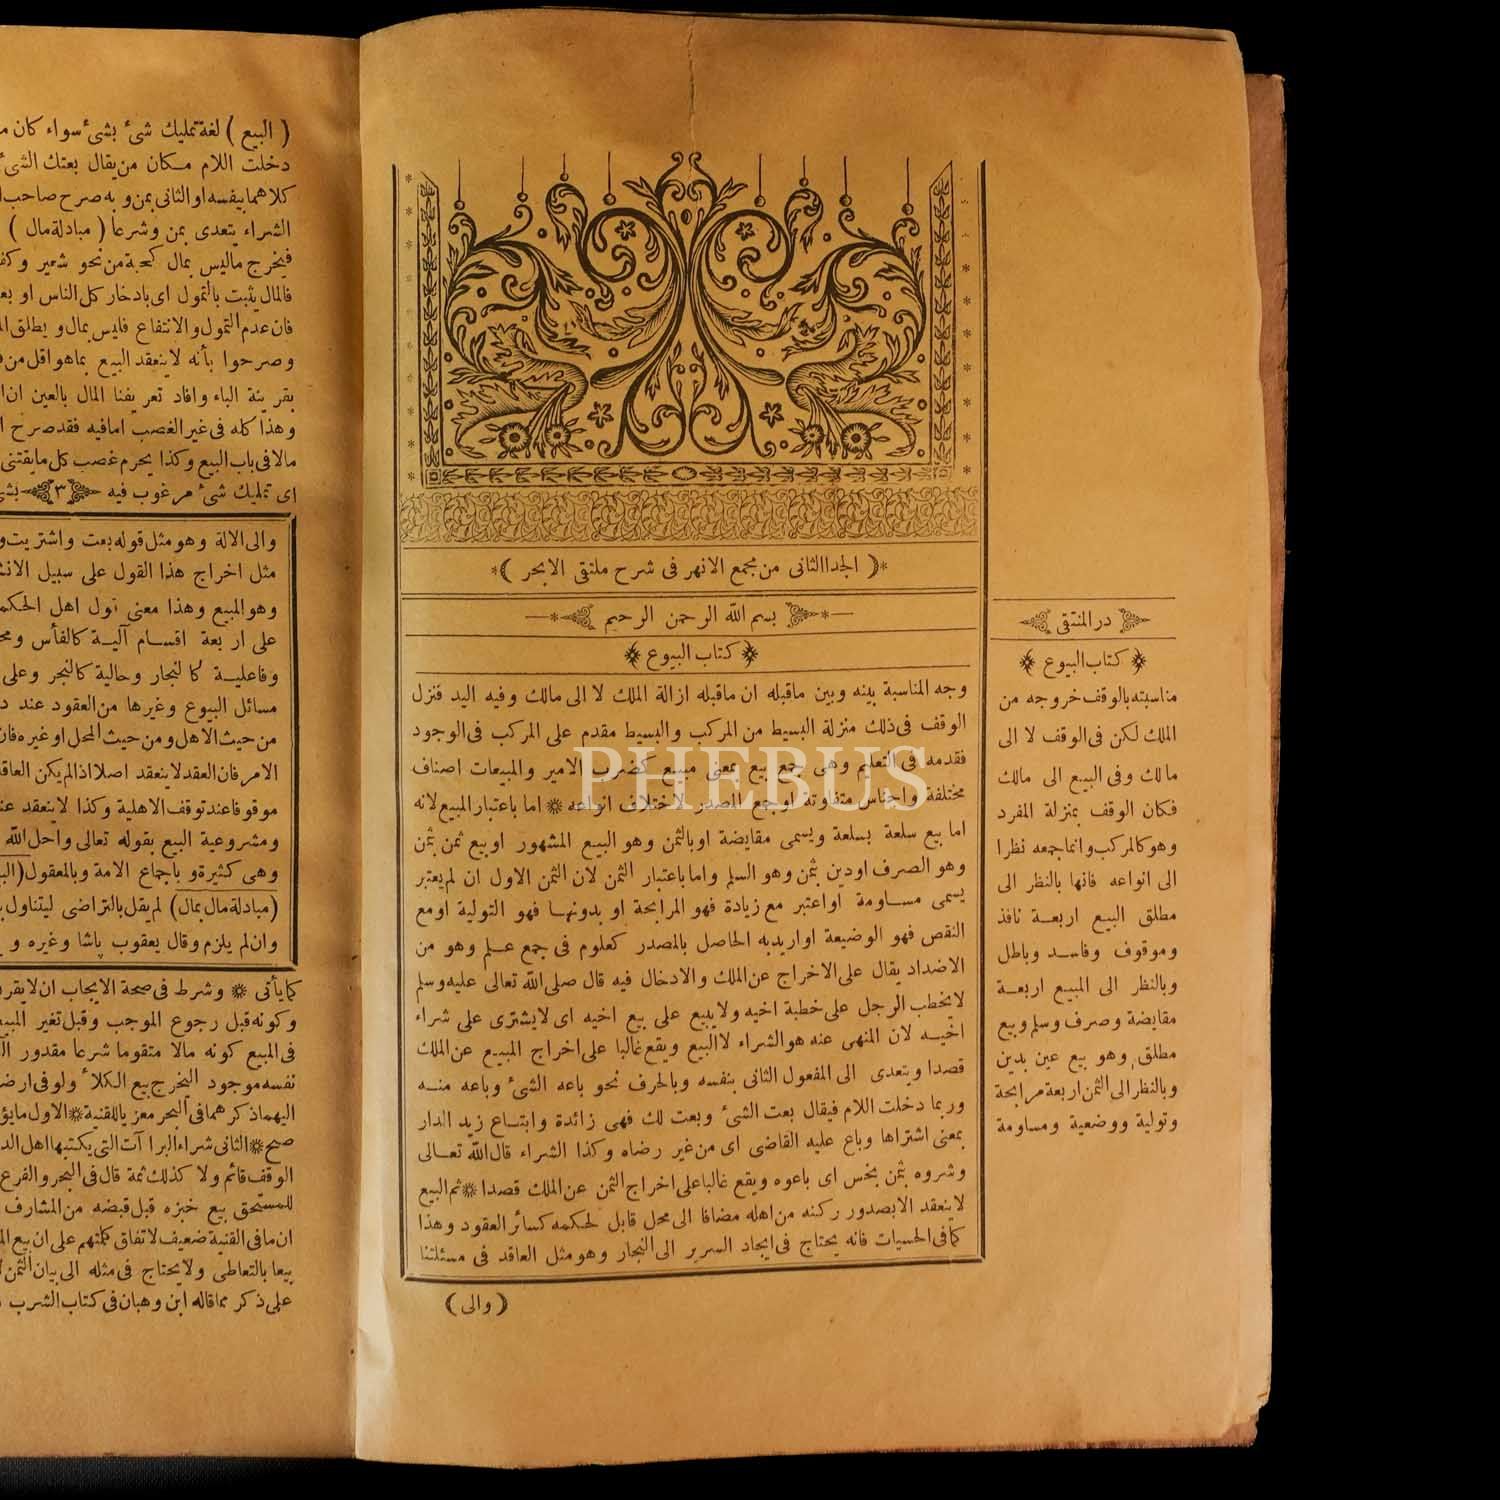 (الجلد الثانى من مجمع الانهر فى شرح ملتقى الابحر)
بسم الله الرحمن الرحيم
كتاب البيوع
وجه المناسبة بينه وبين ماقبله ان ماقبله ازالة الملك لا الى مالك وفيه اليد فنزل
الوقف فى ذلك منزلة البسيط من المركب والبسيط مقدم على المركب فى الوجود
فقدمه فى التعليم وهى جمع بيع بمعنى مبيع كضرب الامير والمبيعات اصناف
مختلفة واجناس متفاوتة اوجمع المصدر لاختلاف انواعه * اما باعتبار المبيع لانه
اما بيع سلعة بسلعة ويسمى مقايضة اوبالثمن وهو البيع المشهور اوبيع ثمن بثمن
وهو الصرف اودين بثمن وهو السلم واما باعتبار الثمن لان الثمن الاول ان لم يعتبر
يسمى مساومة اواعتبر مع زيادة فهو المرابحة او بدونها فهو التولية اومع
النقص فهو الوضيعة اواريد به الحاصل بالمصدر كعلوم فى جمع علم وهو من
الاضداد يقال على الاخراج عن الملك والادخال فيه قال صلى الله تعالى عليه وسلم
لايخطب الرجل على خطبة اخيه ولايبيع على بيع اخيه اى لايشترى على شراء
اخيه لان المنهى عنه هو الشراء لا البيع ويقع غالبا على اخراج المبيع عن الملك
قصدا ويتعدى الى المفعول الثانى بنفسه وبالحرف نحو باعه الشئ وباعه منه
وربما دخلت اللام فيقال بعت الشئ وبعت لك فهى زائدة وابتاع زيد الدار
بمعنى اشتراها وباع عليه القاضى اى من غير رضاه وكذا الشراء قال الله تعالى
وشروه بثمن بخس اى باعوه ويقع غالبا على اخراج الثمن عن الملك قصدا * ثم البيع
لاينعقد الابصدور ركنه من اهله مضافا الى محل قابل لحكمه كسائر العقود وهذا
كما فى الحسيات فانه يحتاج فى ايجاد السرير الى النجار وهو مثل العاقد فى مسئلتنا
(والى)
در المنتقى
كتاب البيوع
مناسبته بالوقف خروجه من
الملك لكن فى الوقف لا الى
مالك وفى البيع الى مالك
فكان الوقف بمنزلة المفرد
وهو كالمركب وانما جمعه نظرا
الى انواعه فانها بالنظر الى
مطلق البيع اربعة نافذ
وموقوف وفاسد وباطل
وبالنظر الى المبيع اربعة
مقايضة وصرف وسلم وبيع
مطلق وهو بيع عين بدين
وبالنظر الى الثمن اربعة مرابحة
وتولية ووضعية ومساومة
(البيع) لغة تمليك شئ بشئ سواء كان
دخلت اللام مكان من يقال بعتك الشئ
كلاهما بنفسه او الثانى بمن وبه صرح صاحب
الشراء يتعدى بمن وشرعا (مبادلة مال)
فيخرج ماليس بمال كحبة من نحو شعير
فالمال يثبت بالتمول اى بادخار كل الناس او
فان عدم التمول والانتفاع فليس بمال و يطلق
وصرحوا بأنه لاينعقد البيع بما هو اقل من
بقرينة الباء وافاد تعريفنا المال بالعين
وهذا كله فى غير الغصب امافيه فقد صرح
مالا فى باب البيع وكذا يحرم غصب كل مايقتنى
اى تمليك شئ مرغوب فيه ٣
والى الالة وهو مثل قوله بعت واشتريت
مثل اخراج هذا القول على سبيل
وهو المبيع وهذا معنى قول اهل
على اربعة اقسام آلية كالفأس
وفاعلية كالنجار وحالية كالنجر وعلى
مسائل البيوع وغيرها من العقود عند
من حيث الاهل ومن حيث المحل او غيره
الامر فان العقد لاينعقد اصلا اذالم يكن
موقوفا عند توقف الاهلية وكذا لاينعقد
ومشروعية البيع بقوله تعالى واحل الله
وهى كثيرة و باجماع الامة وبالمعقول
(مبادلة مال بمال) لم يقل بالتراضى ليتناول
وان لم يلزم وقال يعقوب پاشا وغيره
كما يأتى * وشرط فى صحة الايجاب ان
وكونه قبل رجوع الموجب وقبل تغير
فى المبيع كونه مالا متقوما شرعا مقدور
نفسه موجود اليخرج بيع الكلأ ولو فى
اليهما ذكرهما فى البحر معزيا للقنية * الاول
صح * الثانى شراء البراآت التى يكتبها اهل
الوقف قائم ولا كذلك ثمة قال فى البحر والفرع
للمستحق بيع خبزه قبل قبضه من المشارف
ان مافى القنية ضعيف لاتفاق كلمتهم على ان بيع
بيعا بالتعاطى ولايحتاج فى مثله الى بيان الثمن
على ذكر مماقاله ابن وهبان فى كتاب الشرب
PHEBUS